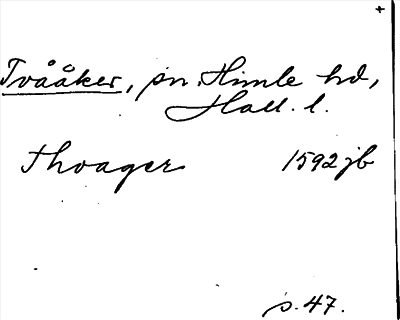 +
Tvååker, sn. Himle hd,
Hall. l.
Thoager 1592 jb
s. 47.